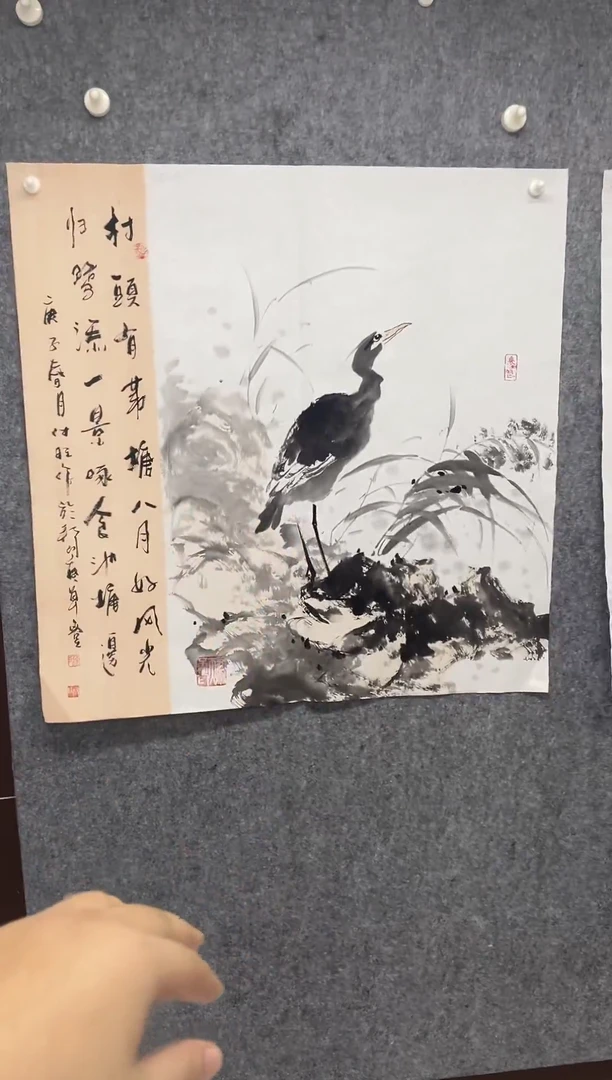 村頭有苇塘八月好风光
归鹭添一景啄食池塘邊
庚子春月付旺作於